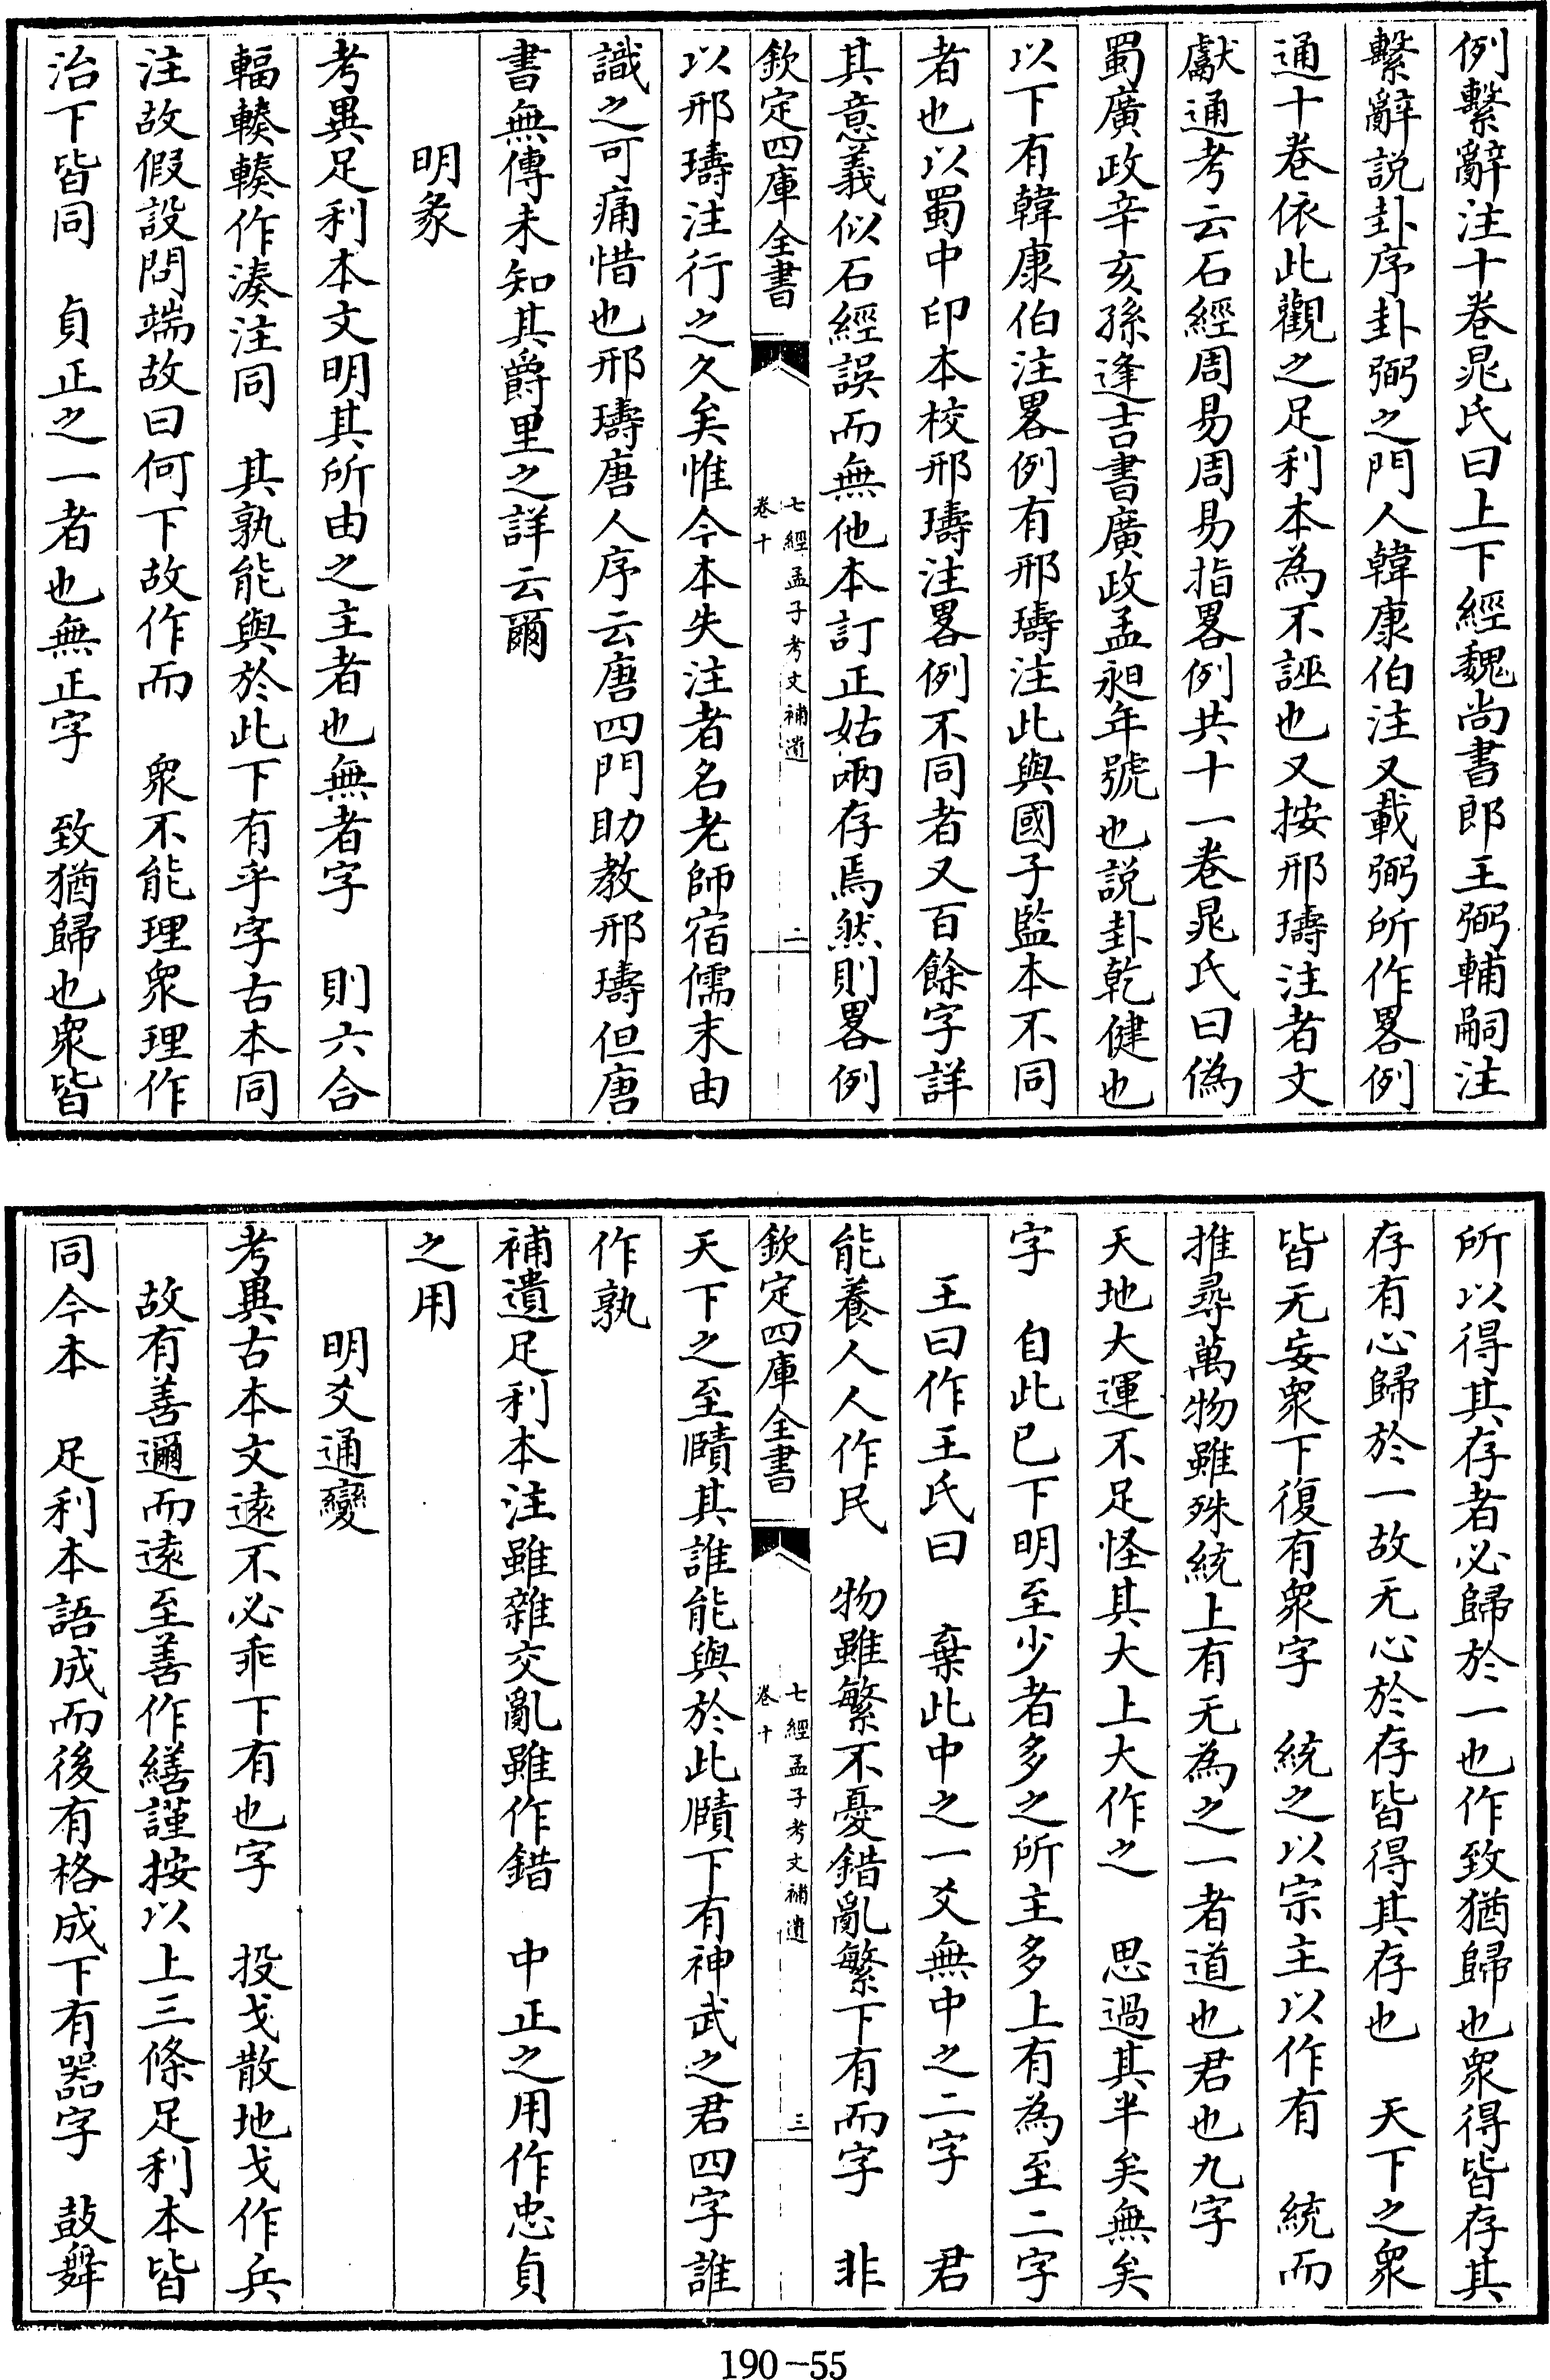 例繫辭注十卷晁氏曰上下經魏尚書郎王弼輔嗣注
繫辭説卦序卦弼之門人韓康伯注又載弼所作畧例
通十卷依此觀之足利本為不誣也又按邢璹注者文
獻通考云石經周易周易指畧例共十一卷晁氏曰偽
蜀廣政辛亥孫逢吉書廣政孟昶年號也説卦乾健也
以下有韓康伯注畧例有邢璹注此與國子監本不同
者也以蜀中印本校邢璹注畧例不同者又百餘字詳
其意義似石經誤而無他本訂正姑兩存焉然則畧例
欽定四庫全書
七經孟子考文補遺
卷十
二
以邢璹注行之久矣惟今本失注者名老師宿儒末由
識之可痛惜也邢璹唐人序云唐四門助教邢璹但唐
書無傳未知其爵里之詳云爾
明彖
考異足利本文明其所由之主者也無者字　則六合
輻輳輳作湊注同　其孰能與於此下有乎字古本同
注故假設問端故曰何下故作而　衆不能理衆理作
治下皆同　貞正之一者也無正字　致猶歸也衆皆
所以得其存者必歸於一也作致猶歸也衆得皆存其
存有心歸於一故无心於存皆得其存也　天下之衆
皆无妄衆下復有衆字　統之以宗主以作有　統而
推尋萬物雖殊統上有无為之一者道也君也九字
天地大運不足怪其大上大作之　思過其半矣無矣
字　自此已下明至少者多之所主多上有為至二字
王曰作王氏曰　棄此中之一爻無中之二字　君
能養人人作民　物雖繁不憂錯亂繁下有而字　非
欽定四庫全書
七經孟子考文補遺
卷十
三
天下之至賾其誰能與於此賾下有神武之君四字誰
作孰
補遺足利本注雖雜交亂雖作錯　中正之用作忠貞
之用
明爻通變
考異古本文遠不必乖下有也字　投戈散地戈作兵
故有善邇而遠至善作繕謹按以上三條足利本皆
同今本　足利本語成而後有格成下有器字　鼓舞
190-55